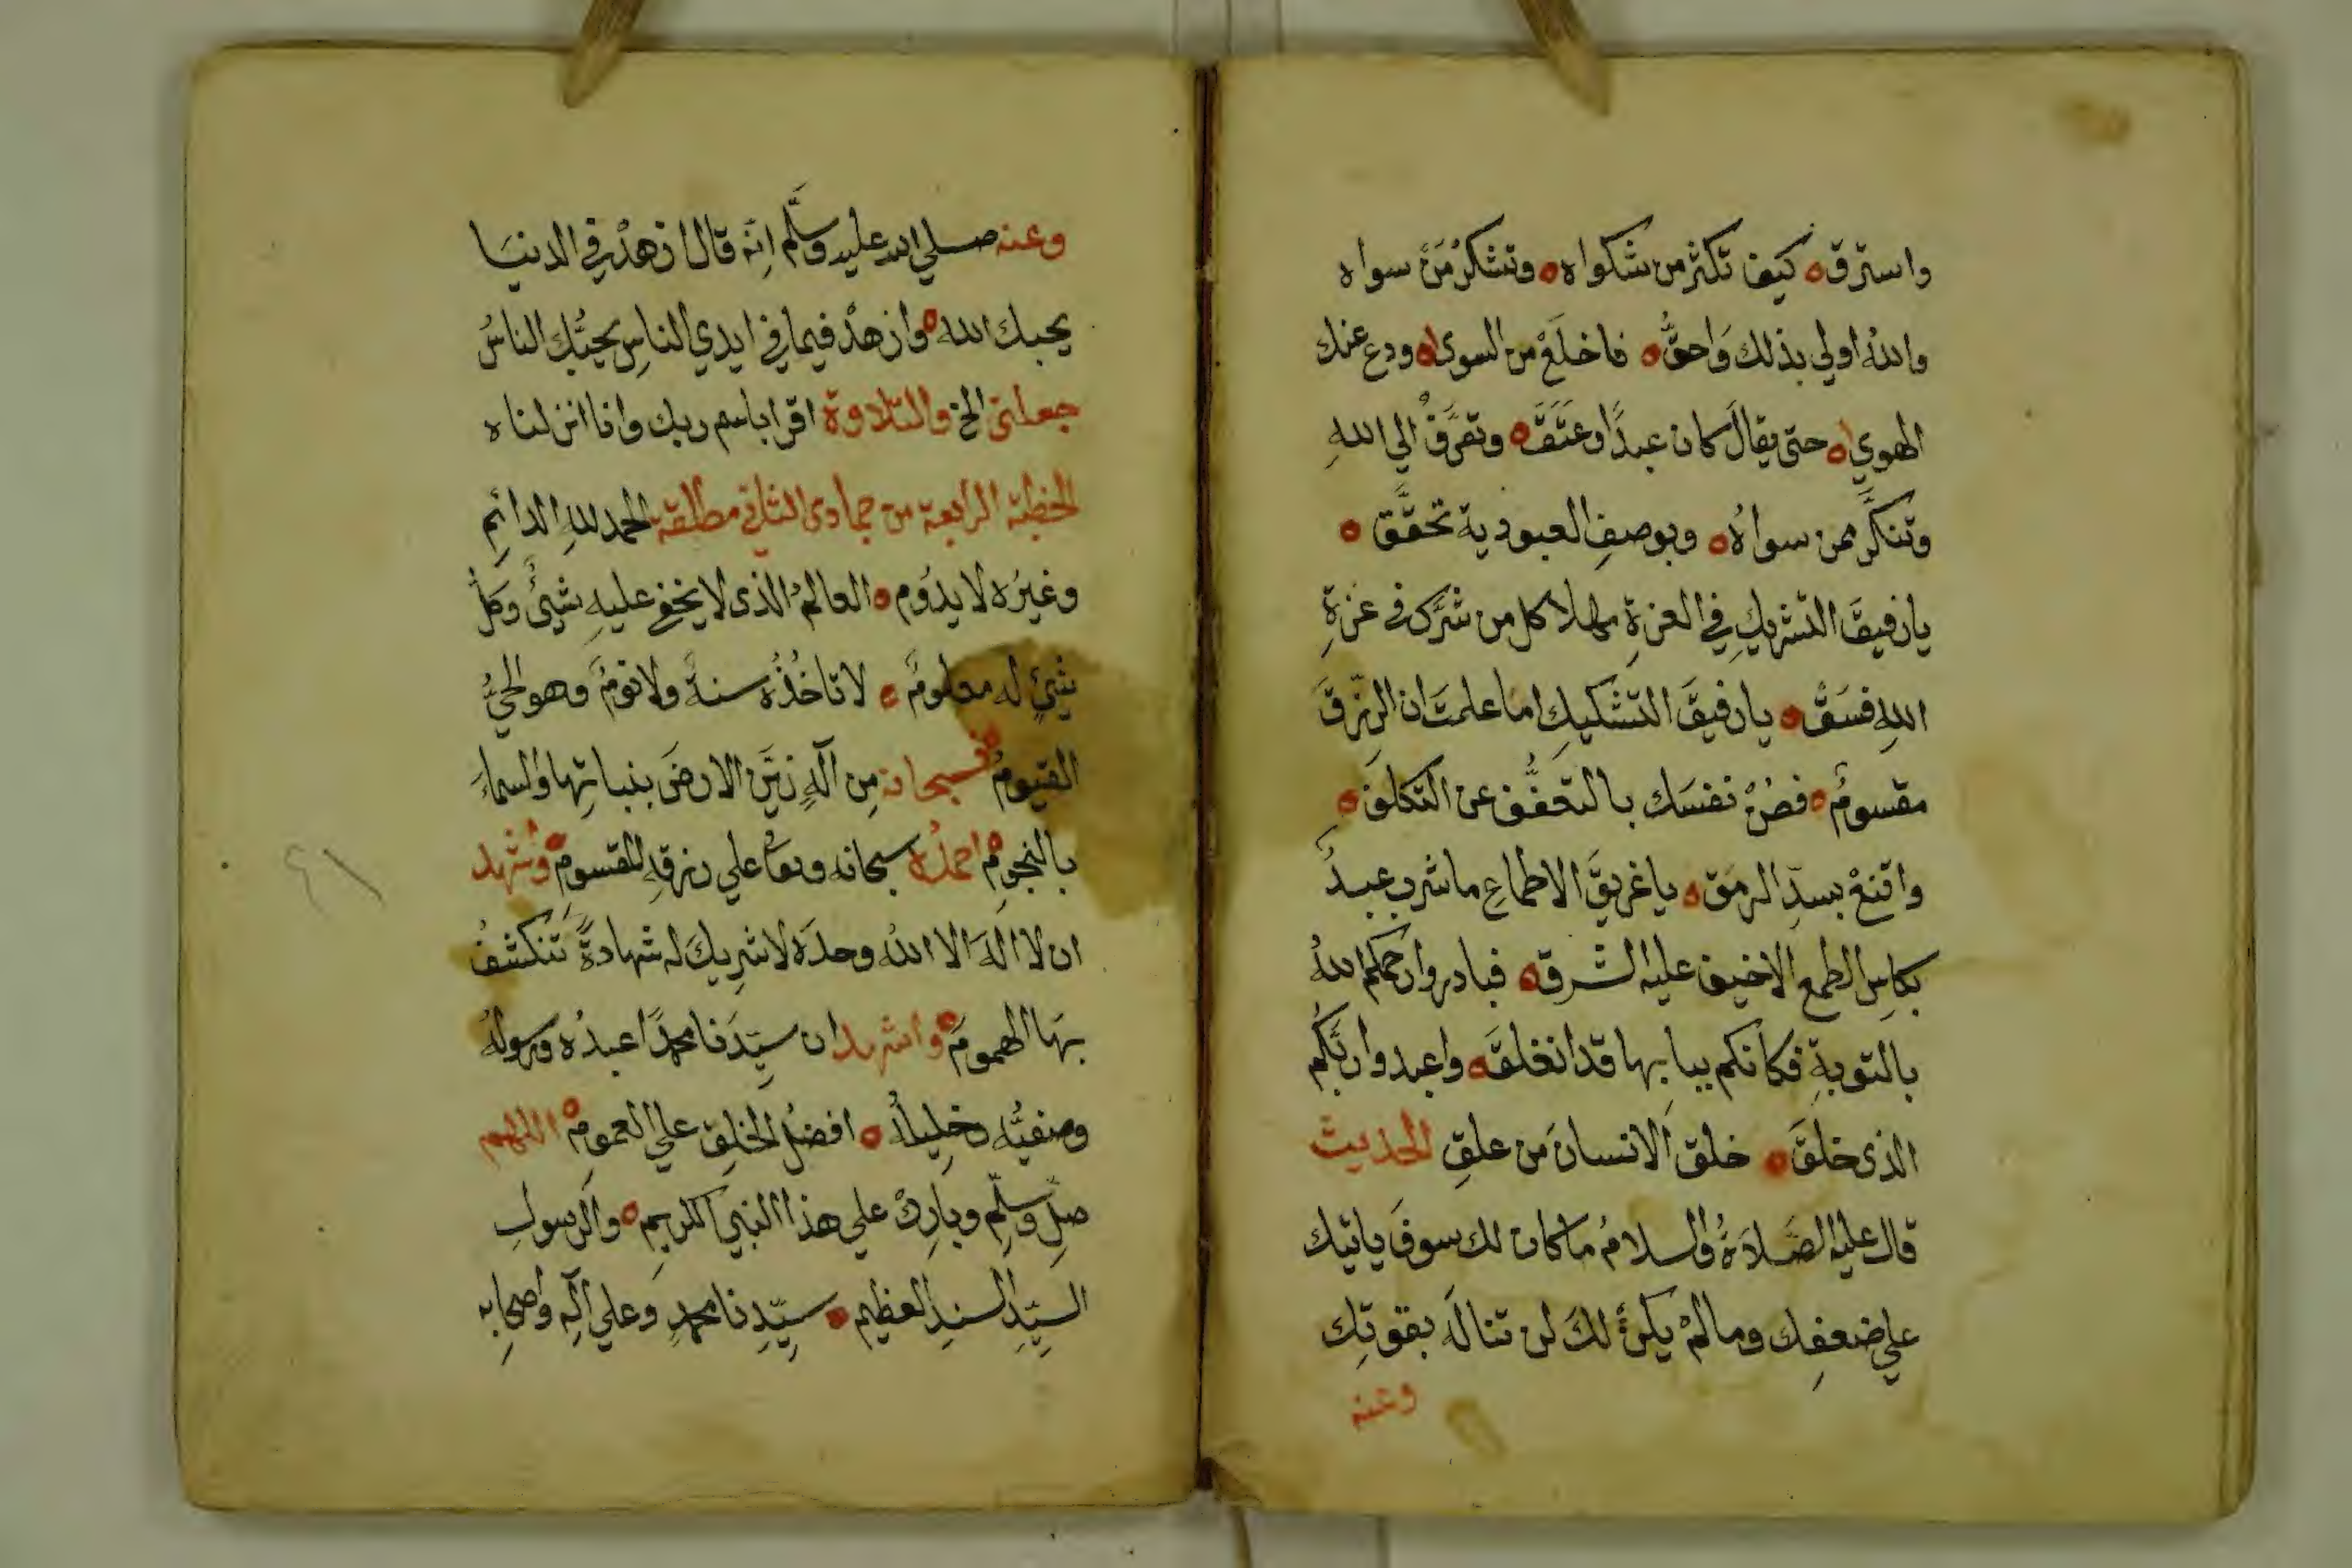 واسترق ه كيف تكثر من شكواه ه وتشكر من سواه
والله اولي بذلك واحق ه فاخلع من السوى ه ودع عنك
الهوي ه حتى يقال كان عبدًا وعتق ه وتعرف الي الله
وتنكر ممن سواه ه وبوصف العبودية تحقق ه
يا رفيق التشريك في العزة مهلا كل من شرك في عزة
الله فسق ه يا رفيق التشكيك اما علمت ان الرزق
مقسوم ه فصن نفسك بالتعفف عن التكلف ه
واقنع بسد الرمق ه يا غريق الاطماع ما شرب عبد
بكاس الطمع الا خيف عليه الشرق ه فبادروا رحمكم الله
بالتوبة فكانكم ببابها قد انغلق ه واعبدوا ربكم
الذى خلق ه خلق الانسان من علق الحديث
قال عليه الصلاة والسلام ما كان لك سوف ياتيك
علي ضعفك وما لم يكن لك لن تناله بقوتك
وعنه
وعنه صلي الله عليه وسلم انه قال ازهد في الدنيا
يحبك الله ه وازهد فيما في ايدي الناس يحبك الناس
جعلنى الخ والتلاوة اقرا باسم ربك وانا انزلناه
الخطبة الرابعة من جمادى الثاني مطلقة الحمد لله الدائم
وغيره لا يدوم ه العالم الذى لا يخفي عليه شيئ وكل
شيئ له معلوم ه لا تاخذه سنة ولا نوم وهو الحي
القيوم ه فسبحانه من اله زين الارض بنباتها والسماء
بالنجوم ه احمده سبحانه وتعا علي رزقه المقسوم ه وشهد
ان لا اله الا الله وحده لا شريك له شهادة تنكشف
بها الهموم ه واشهد ان سيدنا محمدًا عبده ورسوله
وصفيه وخليله ه افضل الخلق علي العموم ه اللهم
صل وسلم وبارك علي هذا النبي الكريم ه والرسول
السيد السند العظيم ه سيدنا محمد وعلي آله واصحابه
٤١